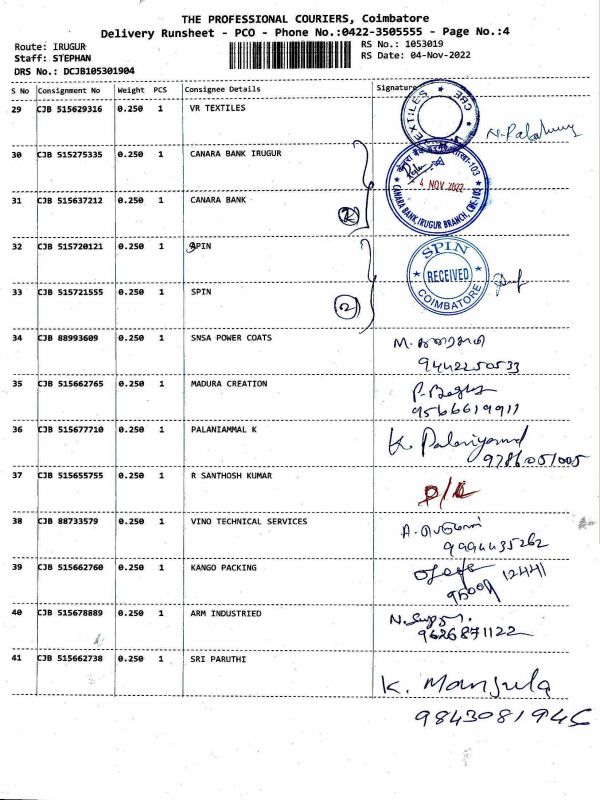 THE PROFESSIONAL COURIERS, Coimbatore
Delivery Runsheet - PCO - Phone No.:0422-3505555 - Page No.:4
Route: IRUGUR
RS No.: 1053019
Staff: STEPHAN
RS Date: 04-Nov-2022
DRS No.: DCJB105301904
S No Consignment No Weight PCS Consignee Details Signature
29 CJB 515629316 0.250 1 VR TEXTILES
TEXTILES CBE
30 CJB 515275335 0.250 1 CANARA BANK IRUGUR
4 NOV 2022
CANARA BANK, IRUGUR BRANCH, CBE-103
31 CJB 515637212 0.250 1 CANARA BANK
2
32 CJB 515720121 0.250 1 SPIN
SPIN
RECEIVED
COIMBATORE
33 CJB 515721555 0.250 1 SPIN
2
34 CJB 88993609 0.250 1 SNSA POWER COATS
9442250533
35 CJB 515662765 0.250 1 MADURA CREATION
9566619911
36 CJB 515677710 0.250 1 PALANIAMMAL K
K.
9786051005
37 CJB 515655755 0.250 1 R SANTHOSH KUMAR
D/L
38 CJB 88733579 0.250 1 VINO TECHNICAL SERVICES
9994435262
39 CJB 515662760 0.250 1 KANGO PACKING
12441
40 CJB 515678889 0.250 1 ARM INDUSTRIED
9626871122
41 CJB 515662738 0.250 1 SRI PARUTHI
K. Manjula
9843081945